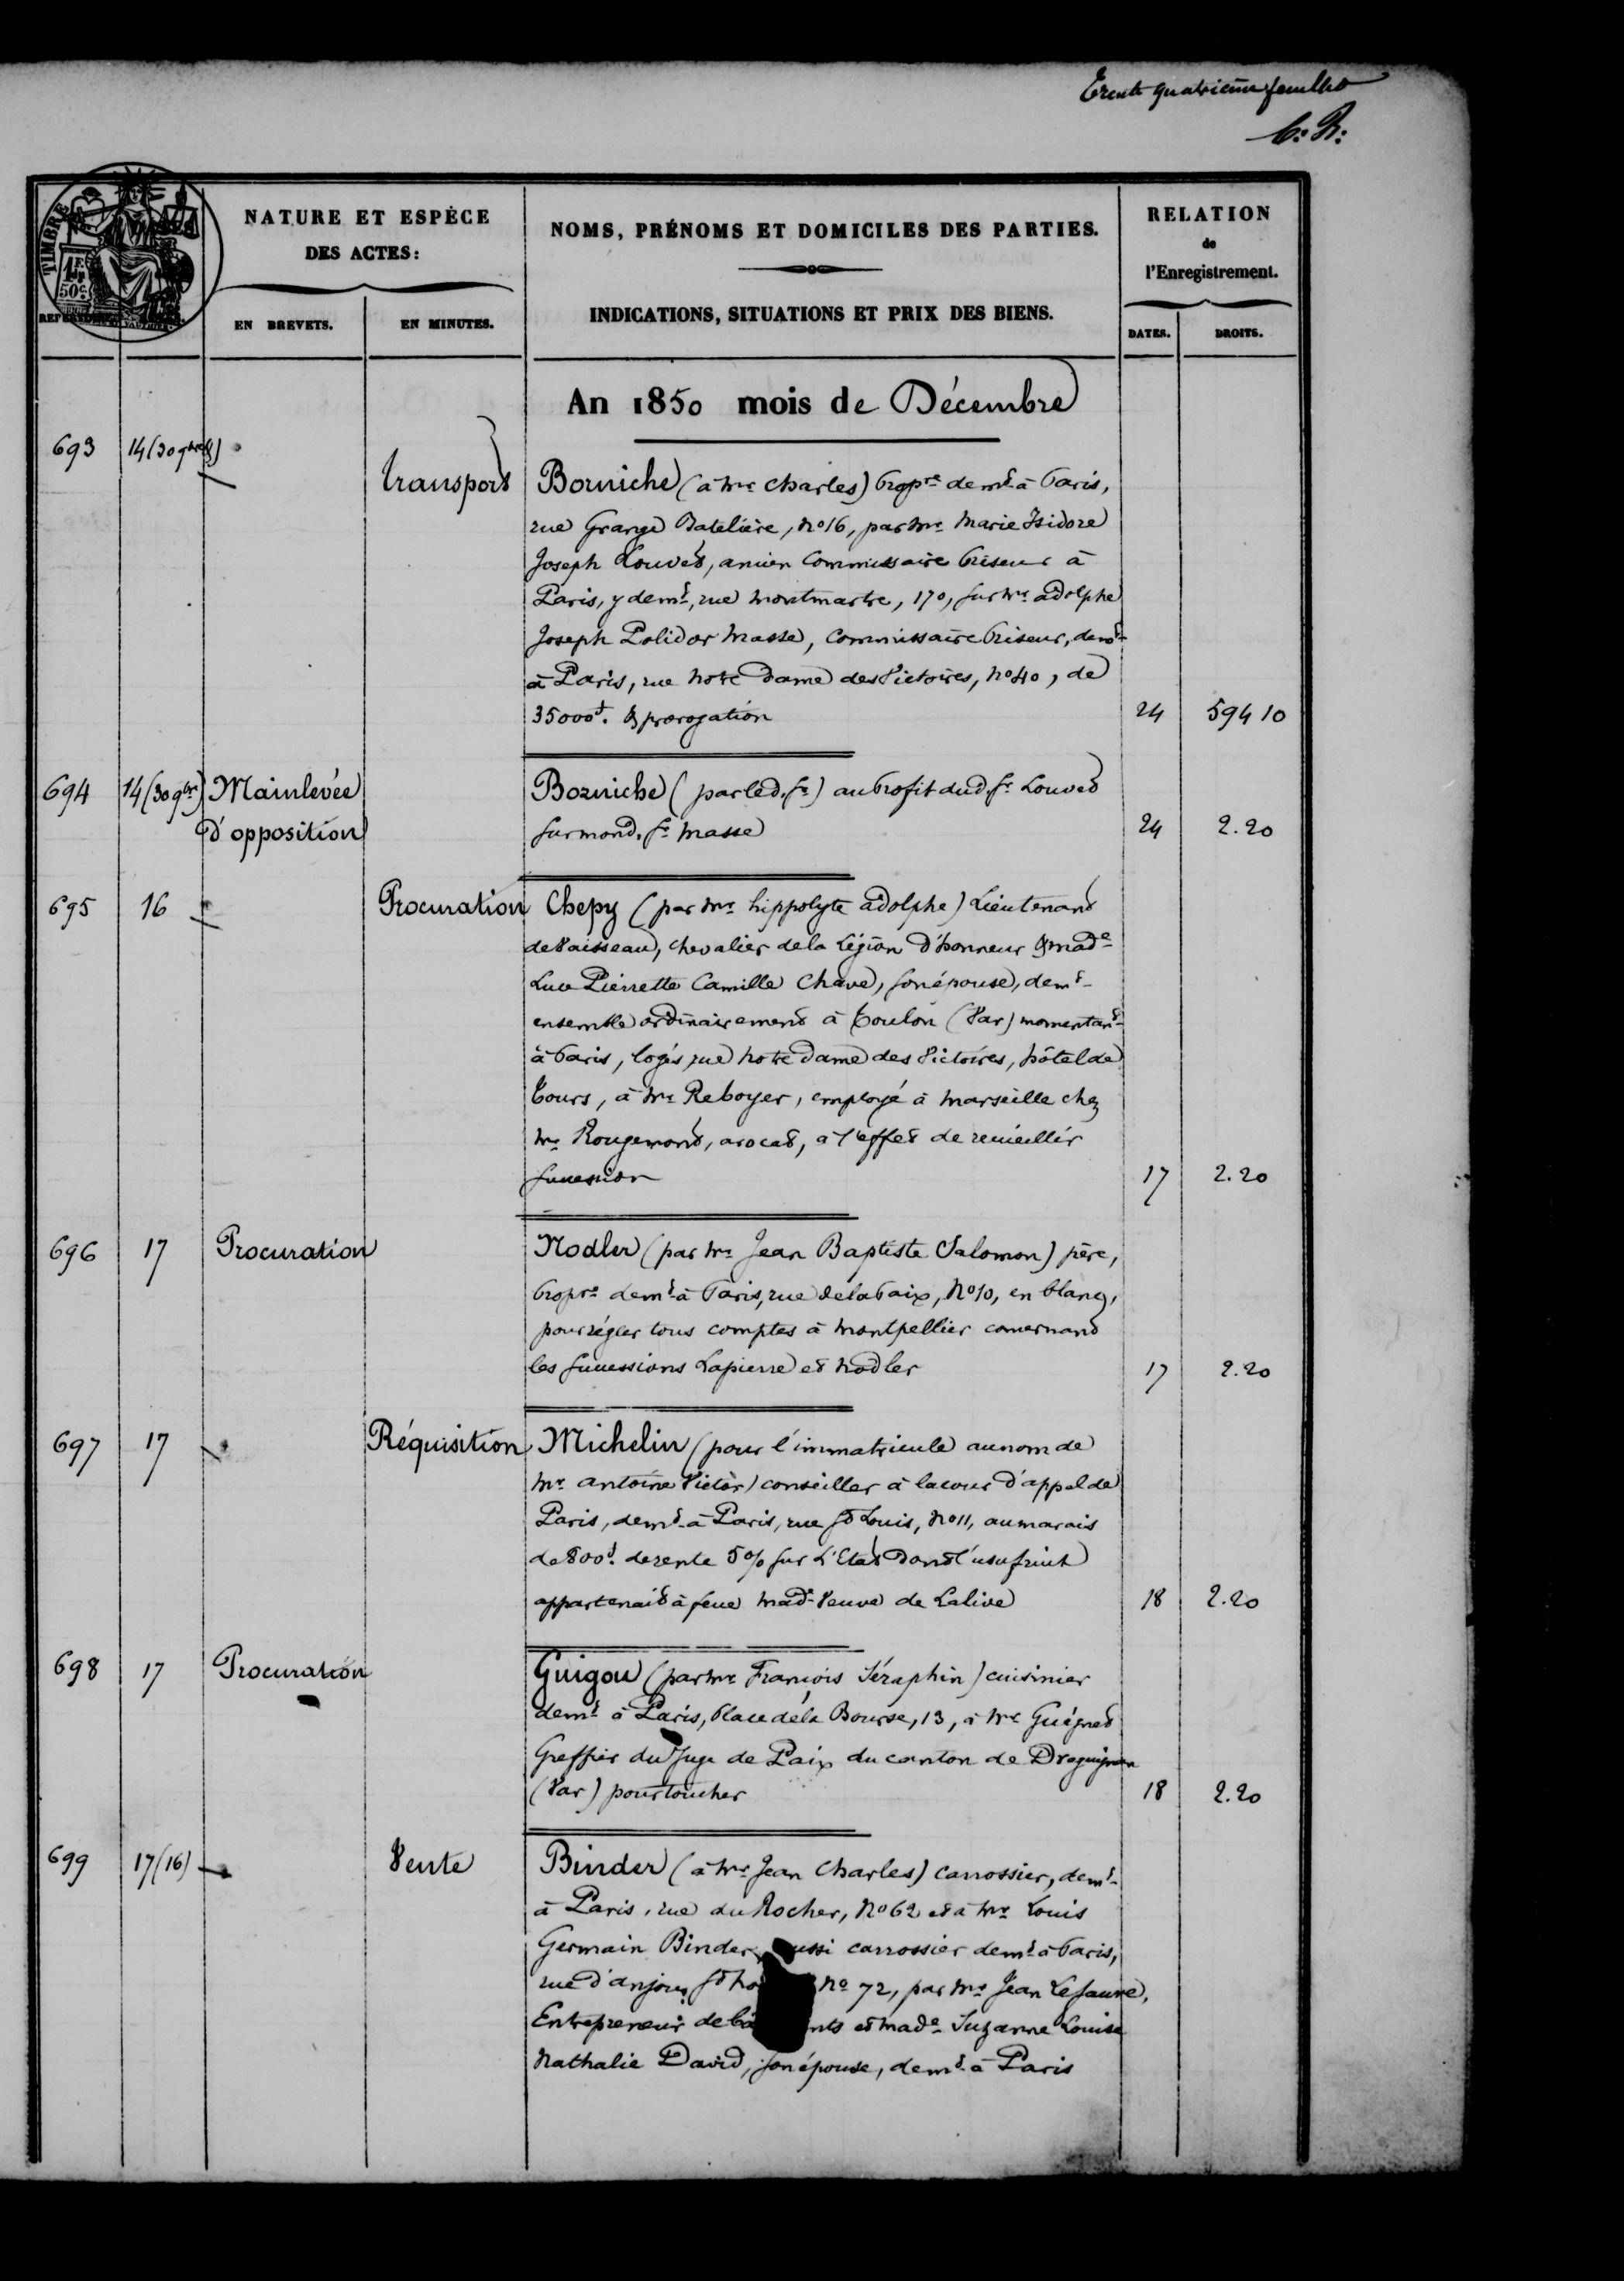 Trente quatrième feuillet
C. R.
TIMBRE
1F 50c
NATURE ET ESPÈCE
DES ACTES:
EN BREVETS.
EN MINUTES.
NOMS, PRÉNOMS ET DOMICILES DES PARTIES.
INDICATIONS, SITUATIONS ET PRIX DES BIENS.
RELATION
de
l'Enregistrement.
DATES.
DROITS.
An 1850 mois de Décembre
693 14 (30 9bre
transport Borniche (à Mr. Charles) propre. demt. à Paris,
rue Grange Batelière, No 16, par Mr. Marie Isidore
Joseph Louvet, ancien Commissaire Priseur à
Paris, y demt., rue Montmartre, 170, sur Mr. Adolphe
Joseph Polidor Masse, Commissaire Priseur, demt.
à Paris, rue Notre Dame des Victoires, No 40, de
35000f. & prorogation 24 594 10
694 14 (30 9bre) Mainlevée Borniche (par led. Sr.) au profit dud. Sr. Louvet
d'opposition sur mond. Sr. Masse 24 2.20
695 16 Procuration Chepy (par Mr. hippolyte Adolphe) Lieutenant
de Vaisseau, chevalier de la Légion d'honneur & made.
Luce Pierrette Camille Chave, son épouse, demt.
ensemble ordinairement à Toulon (Var) momentant.
à Paris, logés rue Notre Dame des Victoires, hôtel de
Tours, à Mr. Reboyer, employé à Marseille chez
Mr. Rougemont, avocat, à l'effet de recueillir
succession 17 2.20
696 17 Procuration Nodler (par Mr. Jean Baptiste Salomon) père,
propre. demt. à Paris, rue de la Paix, No 10, en blanc,
pour régler tous comptes à Montpellier concernant
les successions Lapierre et Nodler 17 2.20
697 17 Réquisition Michelin (pour l'immatricule au nom de
Mr. Antoine Victor) conseiller à la cour d'appel de
Paris, demt. à Paris, rue St Louis, No 11, au marais
de 800f. de rente 5% sur L'Etat dont l'usufruit
appartenait à feue Made. Veuve de Lalive 18 2.20
698 17 Procuration Guigou (par Mr. François Séraphin) cuisinier
demt. à Paris, Place de la Bourse, 13, à Mr. Guégnet
Greffier du Juge de Paix du canton de Draguignan
(Var) pour toucher 18 2.20
699 17 (16) Vente Binder (à Mr. Jean Charles) carrossier, demt.
à Paris, rue du Rocher, No 62 et à Mr. Louis
Germain Binder, aussi carrossier demt. à Paris,
rue d'anjou St ho No 72, par Mr. Jean Lefaure,
Entrepreneur de bâ nts et made. Suzanne Louise
Nathalie David, son épouse, demt. à Paris